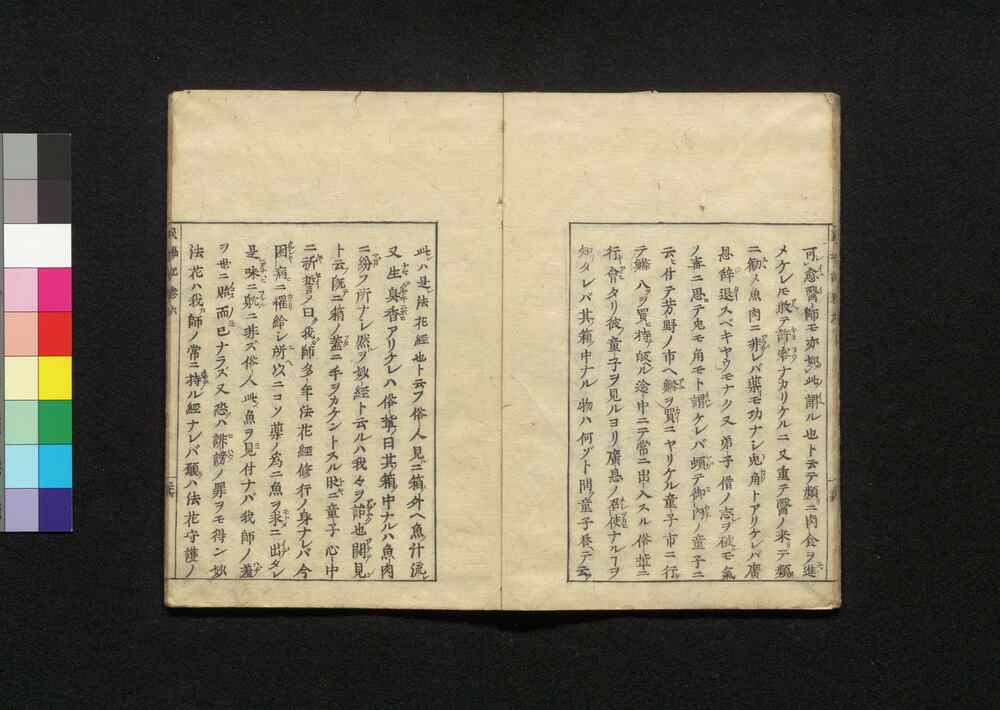 可愈醫師モ亦如此謂ル也ト云テ頻ニ肉食ヲ進
メケレモ敢テ許容ナカリケルニ又重テ醫ノ來テ頻
ニ勸メ魚肉ニ非レバ藥モ功ナシ兎角トアリケレバ廣
恩辞退スベキヤウモナク又弟子僧ノ志ヲ破モ氣
ノ毒ニ思テ兎モ角モト謂ケレバ頓テ御内ノ童子ニ
云付テ芳野ノ市ヘ鯔ヲ買ニヤリケル童子市ニ行
テ鯔八ヲ買機皈ル途中ニテ常ニ出入スル俗輩ニ
行會タリ彼童子ヲ見ルヨリ廣恩ノ召使ナルヿヲ
知タレバ其箱中ナル物ハ何ゾト問童子答テ云
此ハ是法花經也ト云フ俗人見ニ箱外ヘ魚汁流
又生臭香アリケレハ俗輩曰其箱中ナルハ魚肉
ニ紛フ所ナレ然ヲ妙經ト云ルハ我々ヲ誑也開見
ト云既ニ箱ノ蓋ニ手ヲカケントスル時ニ童子心中
ニ祈誓ノ曰我師多年法花經修行ノ身ナレバ今
困病ニ罹給シ所以ニコソ藥ノ爲ニ魚ヲ求ニ出タレ
是味ニ耽ニ非ズ俗人此魚ヲ見付ナバ我師ノ羞
ヲ世ニ貽而已ナラズ又恐ハ誹謗ノ罪ヲモ得ン妙
法花ハ我師ノ常ニ持ル經ナレバ願ハ法花守護ノ